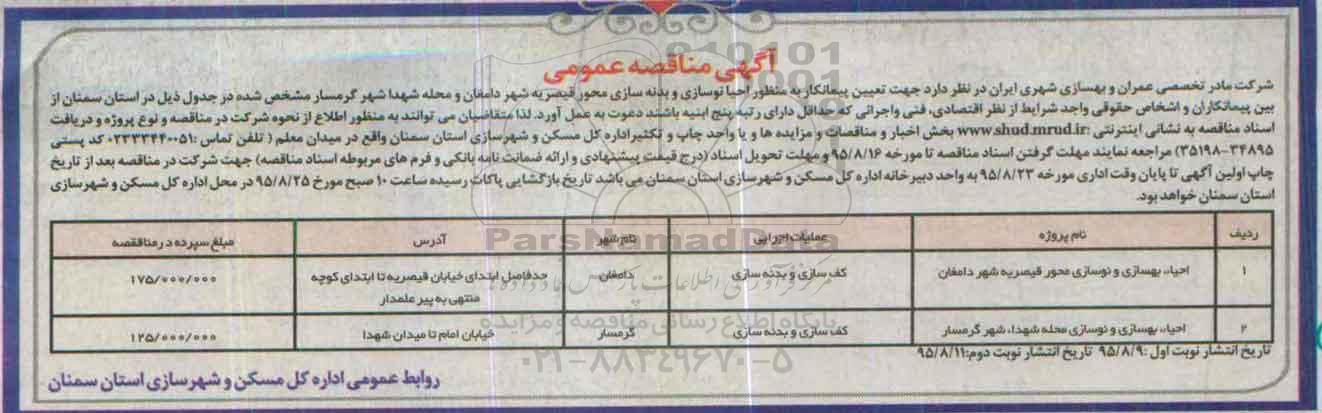 آگهی مناقصه عمومی
شرکت مادر تخصصی عمران و بهسازی شهری ایران در نظر دارد جهت تعیین پیمانکار به منظور احیا نوسازی و بدنه سازی محور قیصریه شهر دامغان و محله شهدا شهر گرمسار مشخص شده در جدول ذیل در استان سمنان از
بین پیمانکاران و اشخاص حقوقی واجد شرایط از نظر اقتصادی، فنی و اجرائی که حداقل دارای رتبه پنج ابنیه باشند دعوت به عمل آورد. لذا متقاضیان می توانند به منظور اطلاع از نحوه شرکت در مناقصه و نوع پروژه و دریافت
اسناد مناقصه به نشانی اینترنتی :www.shud.mrud.ir بخش اخبار و مناقصات و مزایده ها و یا واحد چاپ و تکثیر اداره کل مسکن و شهرسازی استان سمنان واقع در میدان معلم ( تلفن تماس :۰۲۳۳۳۴۴۰۰۵۱ کد پستی
۳۴۸۹۵-۳۵۱۹۸) مراجعه نمایند مهلت گرفتن اسناد مناقصه تا مورخه ۹۵/۸/۱۶ و مهلت تحویل اسناد (درج قیمت پیشنهادی و ارائه ضمانت نامه بانکی و فرم های مربوطه اسناد مناقصه) جهت شرکت در مناقصه بعد از تاریخ
چاپ اولین آگهی تا پایان وقت اداری مورخه ۹۵/۸/۲۳ به واحد دبیرخانه اداره کل مسکن و شهرسازی استان سمنان می باشد تاریخ بازگشایی پاکات رسیده ساعت ۱۰ صبح مورخ ۹۵/۸/۲۵ در محل اداره کل مسکن و شهرسازی
استان سمنان خواهد بود.
ردیف نام پروژه عملیات اجرایی نام شهر آدرس مبلغ سپرده در مناقصه
۱ احیاء، بهسازی و نوسازی محور قیصریه شهر دامغان کف سازی و بدنه سازی دامغان حدفاصل ابتدای خیابان قیصریه تا ابتدای کوچه ۱۷۵/۰۰۰/۰۰۰
منتهی به پیر علمدار
۲ احیاء، بهسازی و نوسازی محله شهدا، شهر گرمسار کف سازی و بدنه سازی گرمسار خیابان امام تا میدان شهدا ۱۲۵/۰۰۰/۰۰۰
تاریخ انتشار نوبت اول :۹۵/۸/۹ تاریخ انتشار نوبت دوم:۹۵/۸/۱۱
روابط عمومی اداره کل مسکن و شهرسازی استان سمنان
ParsNamadData
پایگاه اطلاع رسانی مناقصه و مزایده
۰۲۱-۸۸۳۴۹۶۷۰-۵